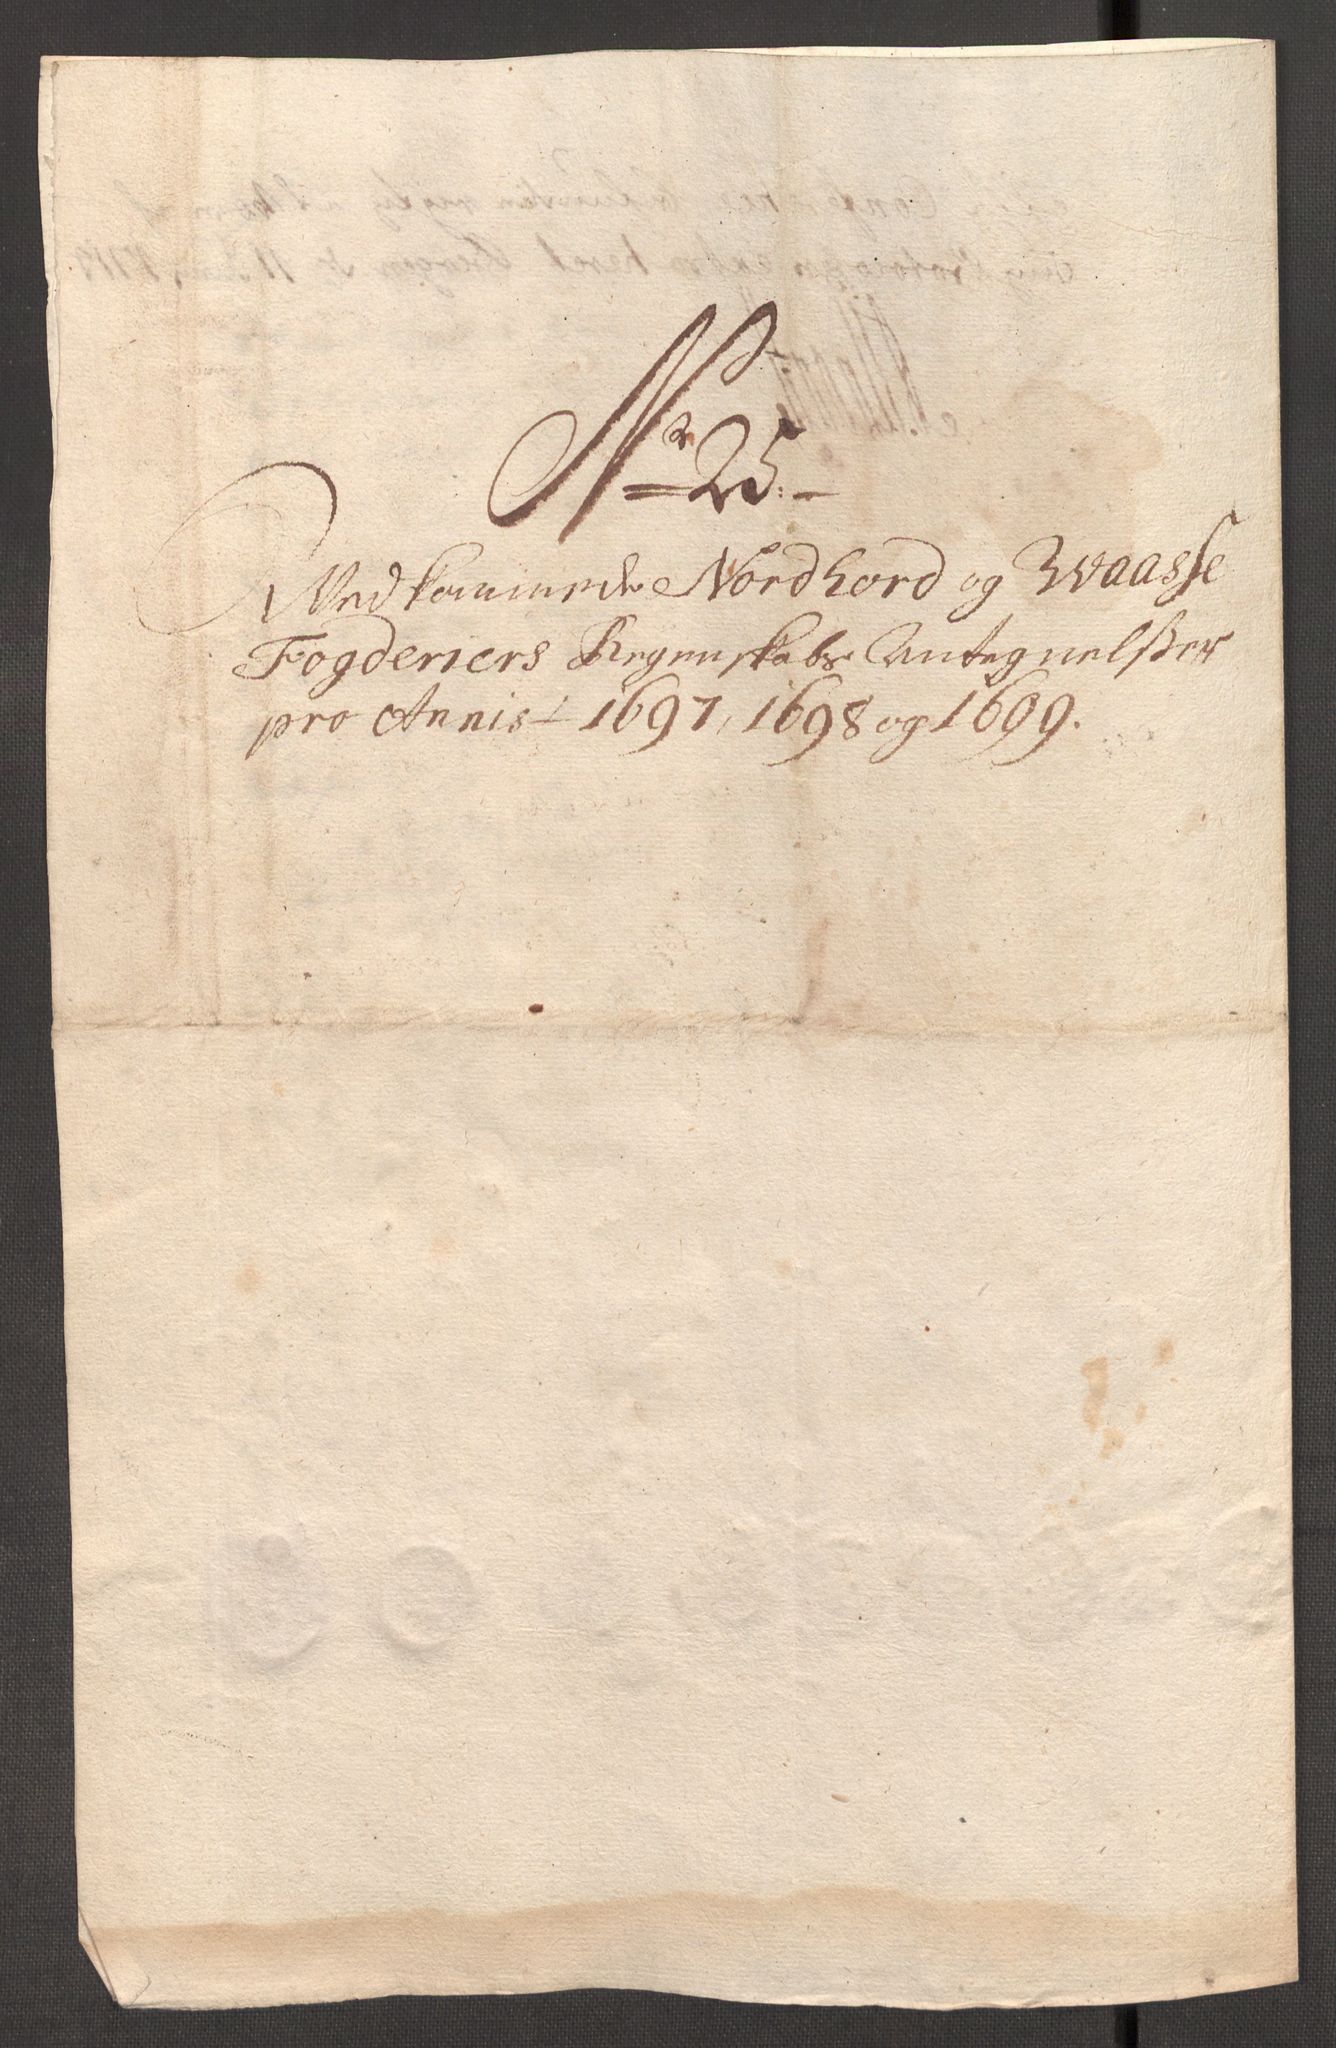 No 25.
Vedkommende Nordhord og Waasse
Fogderiers Regenskabs Antegnelßer
pro Annis 1697, 1698 og 1699.